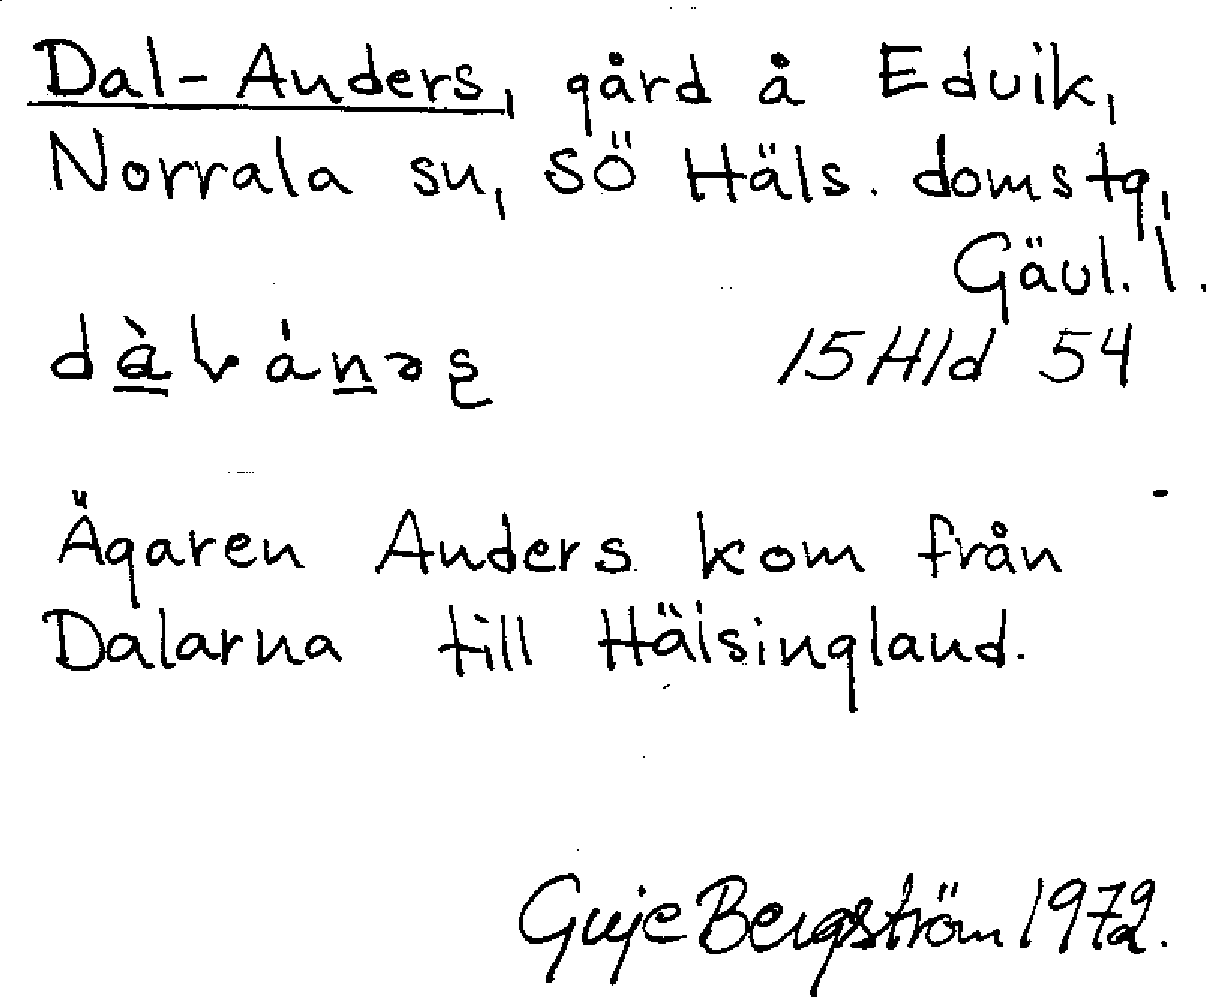 Dal-Anders, gård å Edvik,
Norrala sn, SÖ Häls. domstg,
Gävl. l.
15H1d 54
Ägaren Anders kom från
Dalarna till Hälsingland.
Guje Bergström 1972.